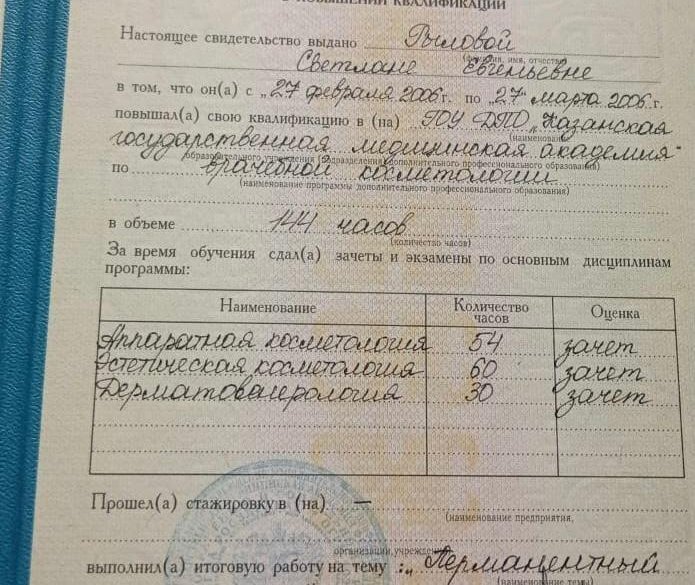 О ПОВЫШЕНИИ КВАЛИФИКАЦИИ
Настоящее свидетельство выдано Рыловой
(фамилия, имя, отчество)
Светлане Евгеньевне
в том, что он(а) с „27 февраля 2006 г. по „27" марта 2006.г.
повышал(а) свою квалификацию в (на) ГОУ ДПО „Казанская
(наименование)
государственная медицинская академия"
образовательного учреждения (подразделения) дополнительного профессионального образования)
по врачебной косметологии
(наименование программы дополнительного профессионального образования)
в объеме 144 часов
(количество часов)
За время обучения сдал(а) зачеты и экзамены по основным дисциплинам
программы:
Наименование Количество часов Оценка
Аппаратная косметология 54 зачет
Эстетическая косметология 60 зачет
Дерматовенерология 30 зачет
Прошел(а) стажировку в (на) —
(наименование предприятия,
организации, учреждения)
выполнил(а) итоговую работу на тему : „Перманентный
(наименование темы)